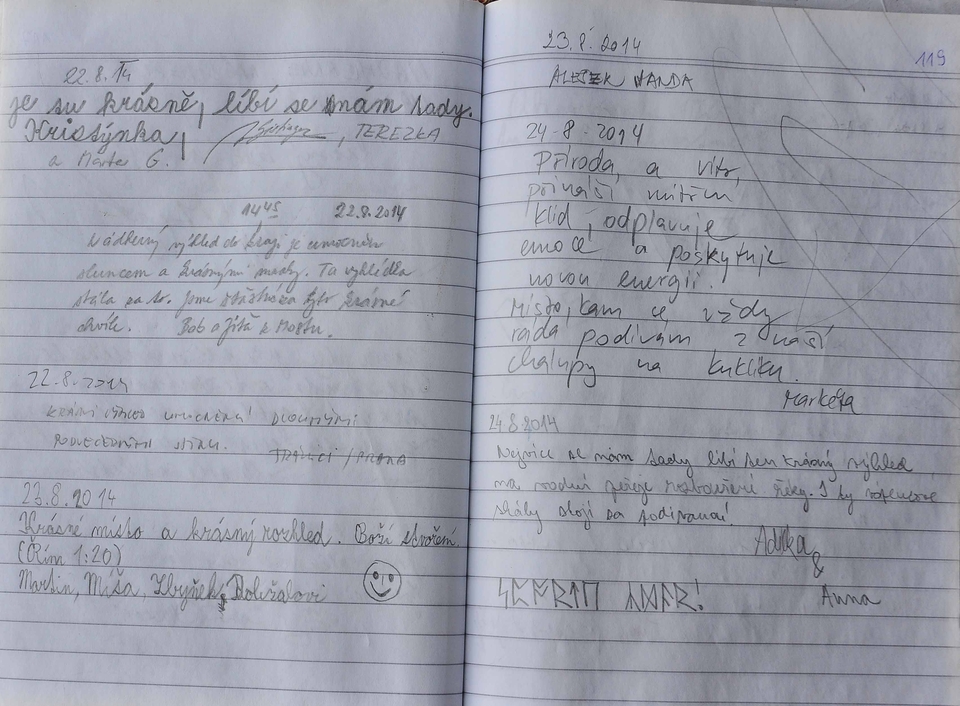 22.8.14
je su krásně, líbí se nám sady.
Kristýnka, TEREZKA
a Martin G.
14 45 22.8.2014
Nádherný výhled do kraji je umocněn
sluncem a krásnými mraky. Ta vyhlídka
stála za to. Jsme šťastni za tyto krásné
chvíle. Bob a Jitka z Mostu.
22.8.2014
KRÁSNÝ VÝHLED UMOCNĚNÝ DLOUHÝMI
PODVEČERNÍMI STÍNY.
/ PRAHA
23.8.2014
Krásné místo a krásný rozhled. Boží stvoření.
(Řím 1:20)
Martin, Míša, Zbyněk, Doležalovi
119
23.8.2014
VANDA
24.8.2014
Příroda, a vítr,
přináší vnitřní
klid, odplavuje
emoce a poskytuje
novou energii.
Místo, kam se vždy
ráda podívám z naší
chalupy na Kukliku.
Markéta
24.8.2014
Nejvíce se nám sady líbí ten krásný výhled
na modní peřeje rozbouřené řeky. I ty vápencové
skály stojí za podívanou!
Adélka
&
Anna
ᛋᛈᚩᚱᛏᚢ ᛉᛞᚨᚱ!